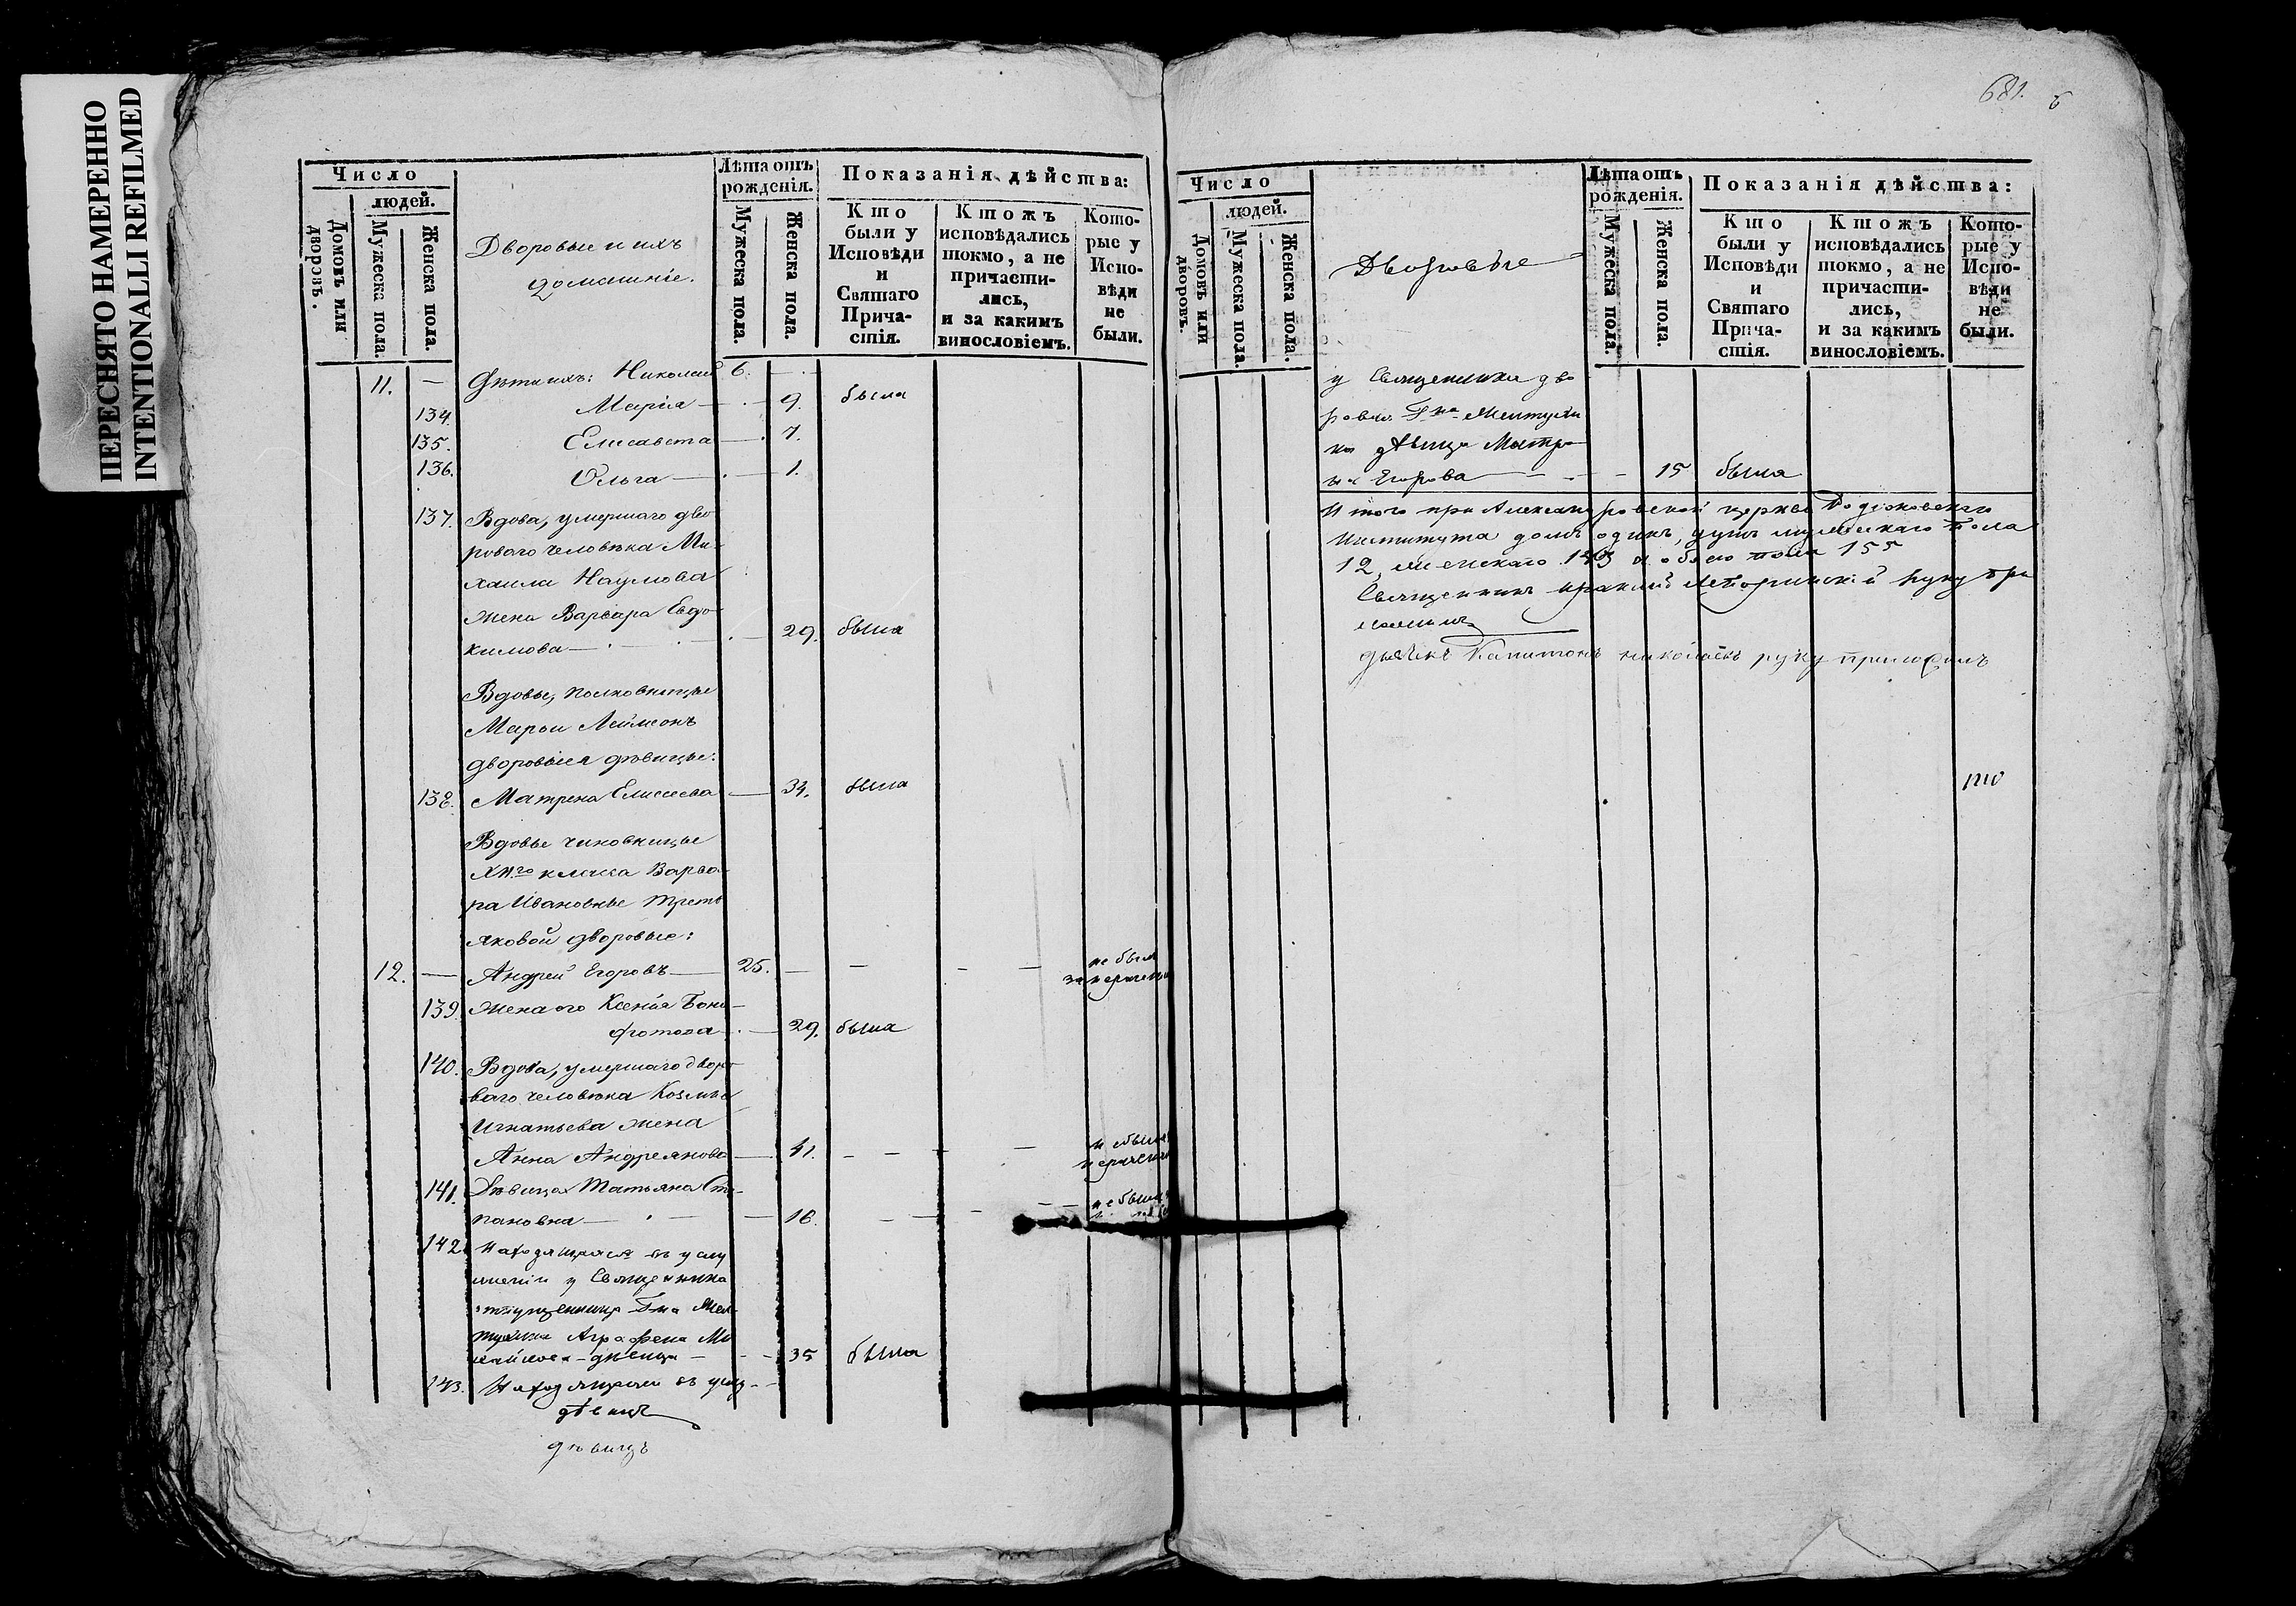 ПЕРЕСНЯТО НАМЕРЕННО
INTENTIONALLI REFILMED
Число
людей.
Домовъ или дворовъ.
Мужеска пола.
Женска пола.
Дворовые и ихъ
домашніе.
Лѣта отъ
рожденія.
Мужеска пола.
Женска пола.
Показанія дѣйства:
Кто
были у
Исповѣди
и
Святаго
Прича-
стія.
Ктожъ
исповѣдались
токмо, а не
причасти-
лись,
и за какимъ
винословіемъ.
Кото-
рые у
Испо-
вѣди
не
были.
11. — Дѣти ихъ: Николай 6. —
134. Марія — 9. была
135. Елисавета — 7.
136. Ольга — 1.
137. Вдова, умершаго дво-
роваго человѣка Ми-
хаила Наумова
жена Варвара Евдо-
кимова — 29. была
Вдовы, полковницы
Марьи
дворовыя дѣвицы:
138. Матрена Елисеева — 34. была
Вдовы чиновницы
класса Варва-
ра Ивановны Треть
яковой дворовые:
12. — Андрей Егоровъ — 25. — — — — не былъ
139. Жена его Ксенія Бони-
фотова — 29. была
140. Вдова, умершаго дворо-
ваго человѣка Козьмы
Игнатьева жена
Анна Андреянова — 41. — — — — не была
141. Дѣвица Татьяна Сте-
пановна — 16. — — — — не была
142. Находящаяся въ услу
женіи у Священника
Г-на
Аграфена Ми
дѣвица — 35 была
143. Находящаяся въ услу-
дѣвицъ
дѣвицъ
681. б
Число
людей.
Домовъ или дворовъ.
Мужеска пола.
Женска пола.
Дворовые
Лѣта отъ
рожденія.
Мужеска пола.
Женска пола.
Показанія дѣйства:
Кто
были у
Исповѣди
и
Святаго
Прича-
стія.
Ктожъ
исповѣдались
токмо, а не
причасти-
лись,
и за какимъ
винословіемъ.
Кото-
рые у
Испо-
вѣди
не
были.
у Священника дво
ровая Г-на
дѣвица Матре
на Егорова — — — 15 была
Итого при Александровской церкви
Института домъ одинъ, душъ мужескаго пола
12, женскаго 143 а обоего пола 155
Священникъ руку при
ложилъ
дьячекъ Капитонъ Николаевъ руку приложилъ